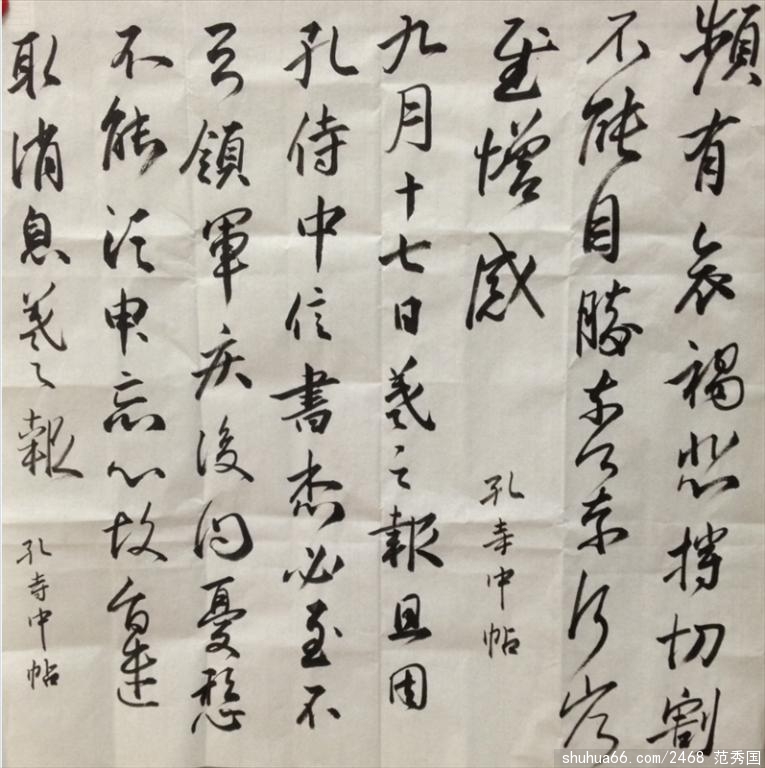 頻有哀禍悲摧切割
不能自勝奈何奈何省
慰增感
孔寺中帖
九月十七日羲之報且因
孔侍中信書想必至不
知領軍疾後問憂懸
不能須臾忘心故旨遣
取消息羲之報
孔寺中帖
shuhua66.com/2468 范秀国